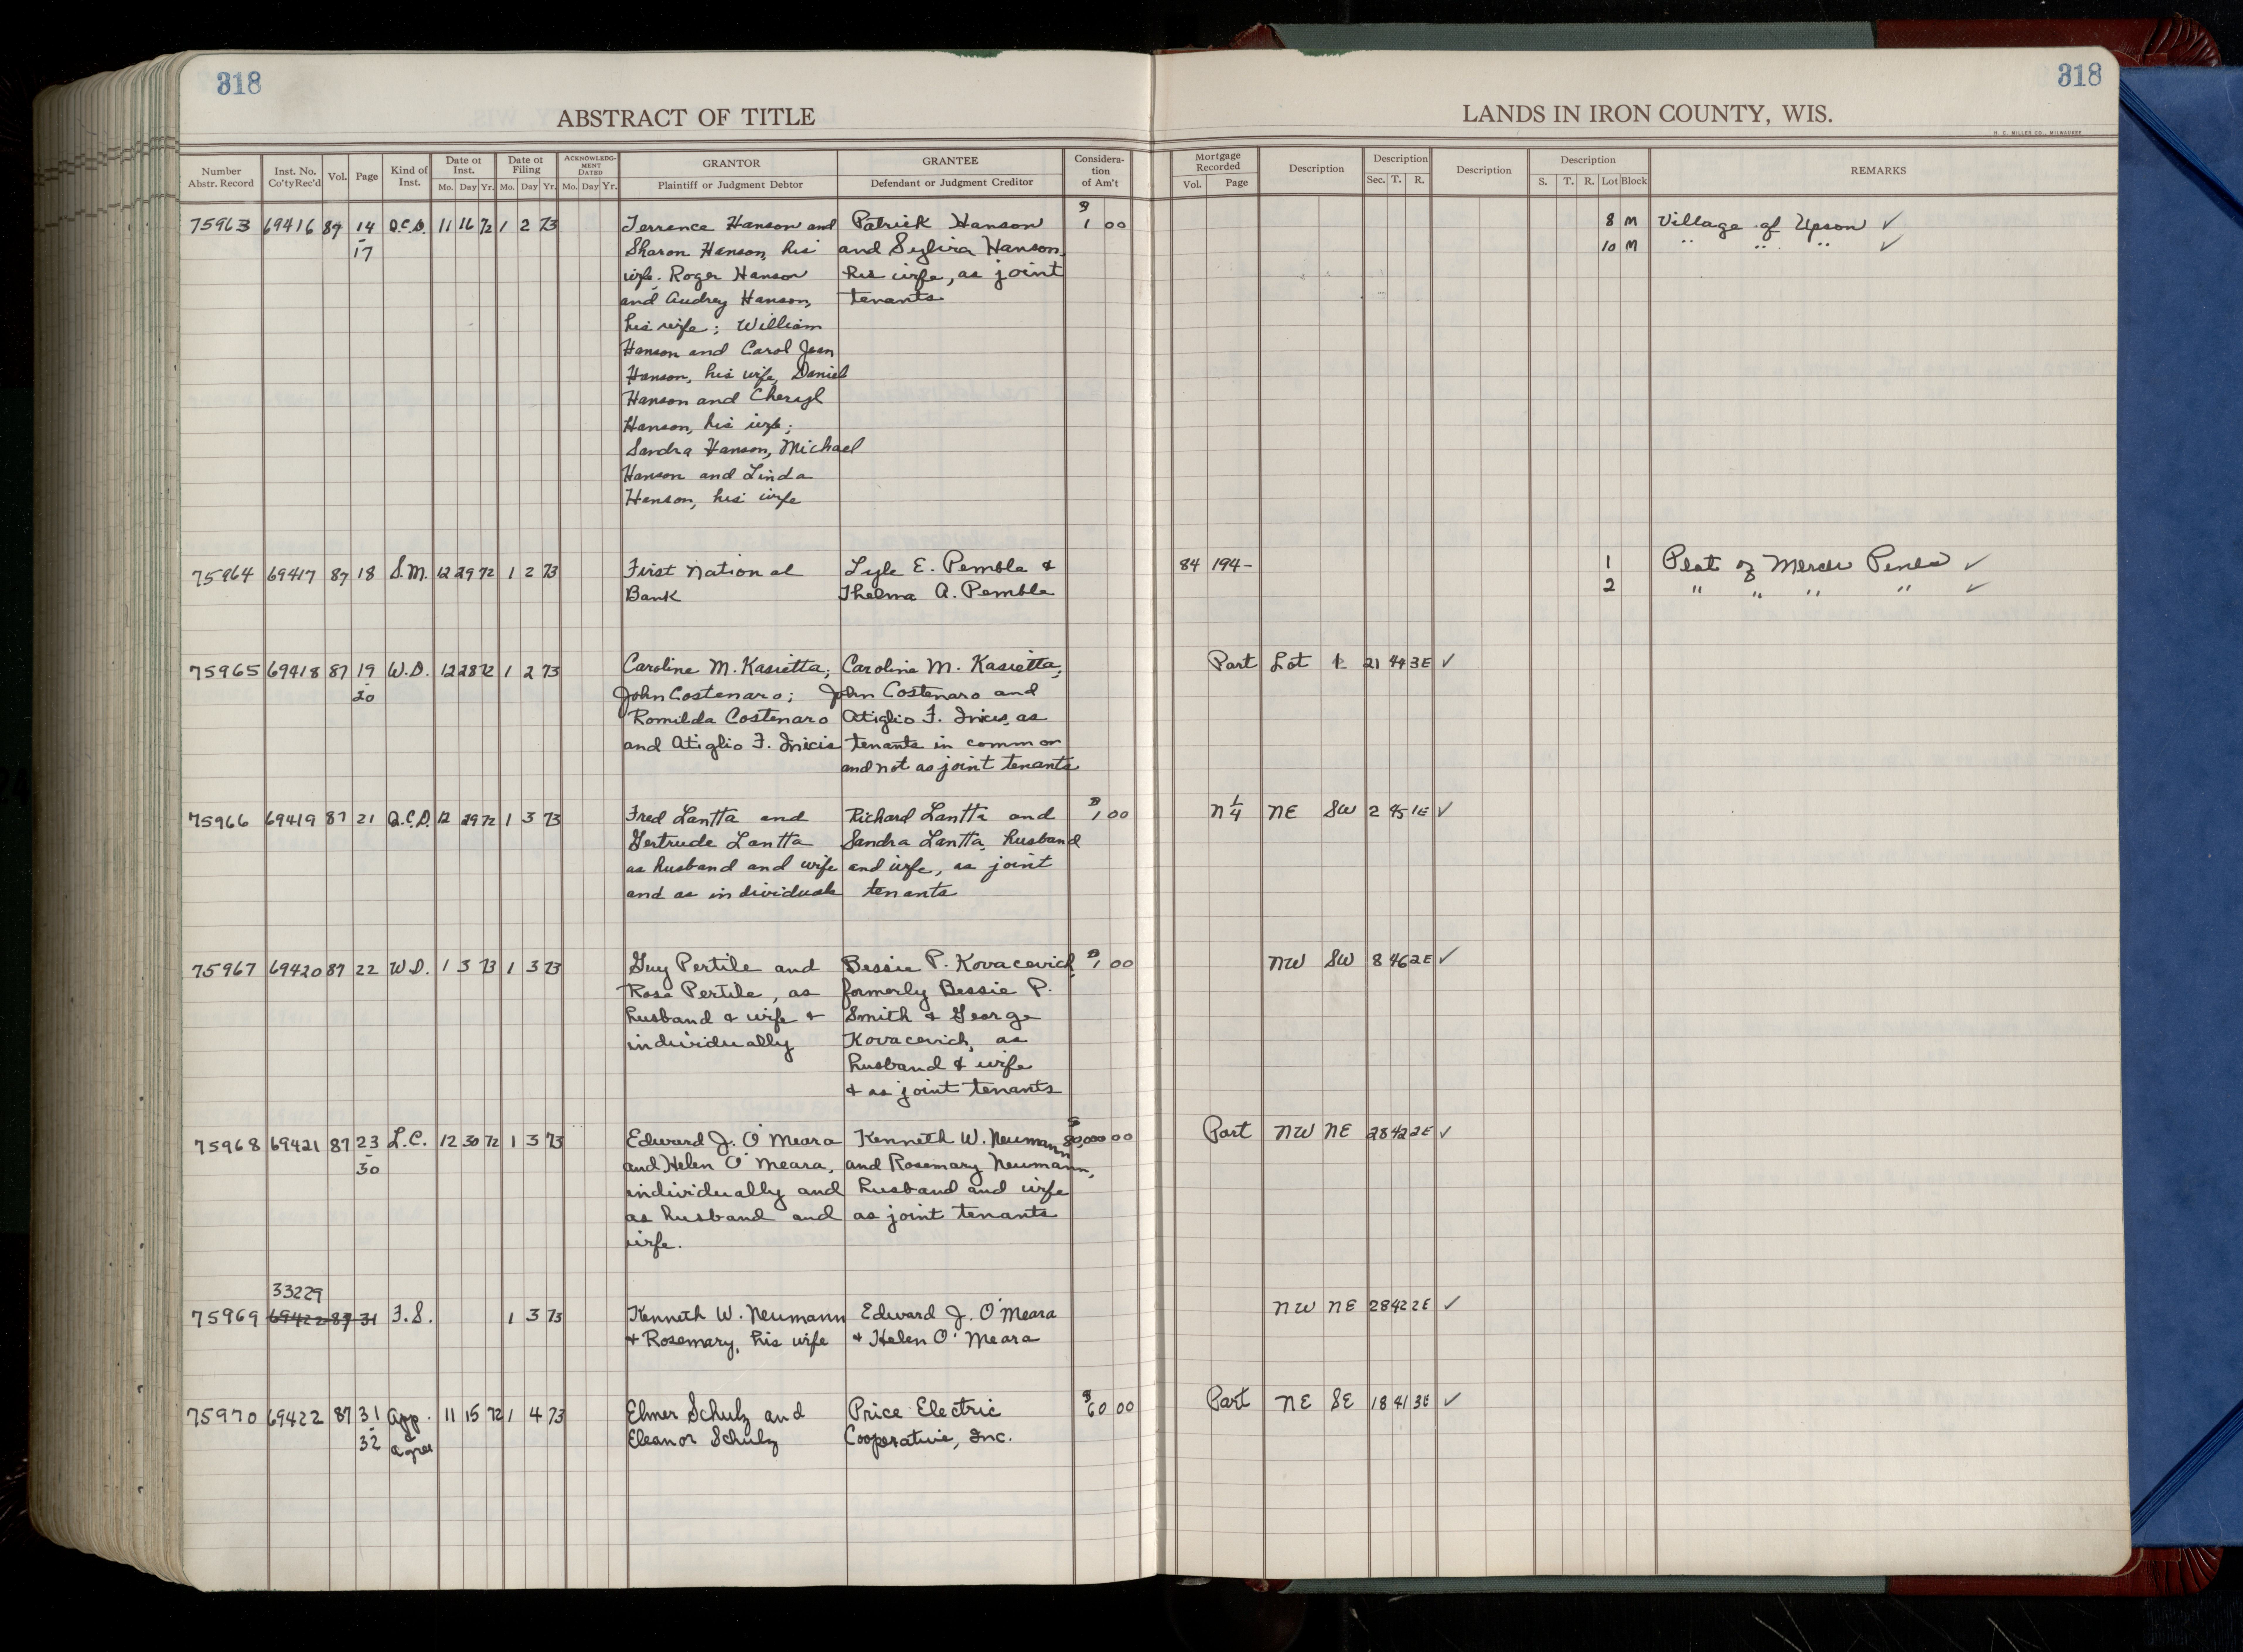 318
ABSTRACT OF TITLE
Number Abstr. Record
Inst. No. Co'ty Rec'd
Vol.
Page
Kind of Inst.
Date of Inst.
Mo. Day Yr.
Date of Filing
Mo. Day Yr.
ACKNOWLEDGMENT DATED
Mo. Day Yr.
GRANTOR
Plaintiff or Judgment Debtor
GRANTEE
Defendant or Judgment Creditor
Consideration of Am't
75963 69416 87 14 Q.C.D. 11 16 72 1 2 73 Terrence Hanson and Patrick Hanson $1 00
17 Sharon Hanson, his and Sylvia Hanson,
wife. Roger Hanson his wife, as joint
and Audrey Hanson, tenants
his wife; William
Hanson and Carol Jean
Hanson, his wife, Daniel
Hanson and Cheryl
Hanson, his wife;
Sandra Hanson, Michael
Hanson and Linda
Hanson, his wife
75964 69417 87 18 S.M. 12 29 72 1 2 73 First National Lyle E. Pemble &
Bank Thelma A. Pemble
75965 69418 87 19 W.D. 12 28 72 1 2 73 Caroline M. Kasietta; Caroline M. Kasietta;
20 John Costenaro; John Costenaro and
Romilda Costenaro Atiglio F. as
and Atiglio F. tenants in common
and not as joint tenants
75966 69419 87 21 Q.C.D. 12 29 72 1 3 73 Fred Lantta and Richard Lantta and $1 00
Gertrude Lantta Sandra Lantta, husband
as husband and wife and wife, as joint
and as individuals tenants
75967 69420 87 22 W.D. 1 3 73 1 3 73 Guy Pertile and Bessie P. Kovacevich $1 00
Rose Pertile, as formerly Bessie P.
husband & wife & Smith & George
individually Kovacevich, as
husband & wife
& as joint tenants
75968 69421 87 23 L.C. 12 30 72 1 3 73 Edward J. O'Meara Kenneth W. Neumann 000 00
30 and Helen O'Meara, and Rosemary Neumann,
individually and husband and wife
as husband and as joint tenants
wife.
33229
75969 69422 87 31 F.S. 1 3 73 Kenneth W. Neumann Edward J. O'Meara
& Rosemary, his wife & Helen O'Meara
75970 69422 87 31 App. 11 15 72 1 4 73 Elmer Schulz and Price Electric $60 00
32 & agree Eleanor Schulz Cooperative, Inc.
318
LANDS IN IRON COUNTY, WIS.
H. C. MILLER CO., MILWAUKEE
Mortgage Recorded
Vol. Page
Description
Description
Sec. T. R.
Description
Description
S. T. R. Lot Block
REMARKS
8 M Village of Upson ✓
10 M " " " ✓
84 194- 1 Plat of Mercer Pines ✓
2 " " " " ✓
Part Lot 21 44 3E ✓
N 1/4 NE SW 2 45 1E ✓
NW SW 8 46 2E ✓
Part NW NE 28 42 2E ✓
NW NE 28 42 2E ✓
Part NE SE 18 41 3E ✓